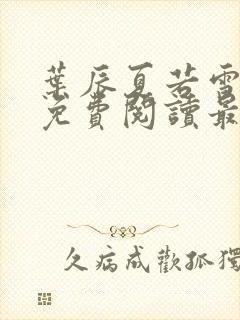 葉辰夏若雪
免費閱讀最
久病成歡孤獨